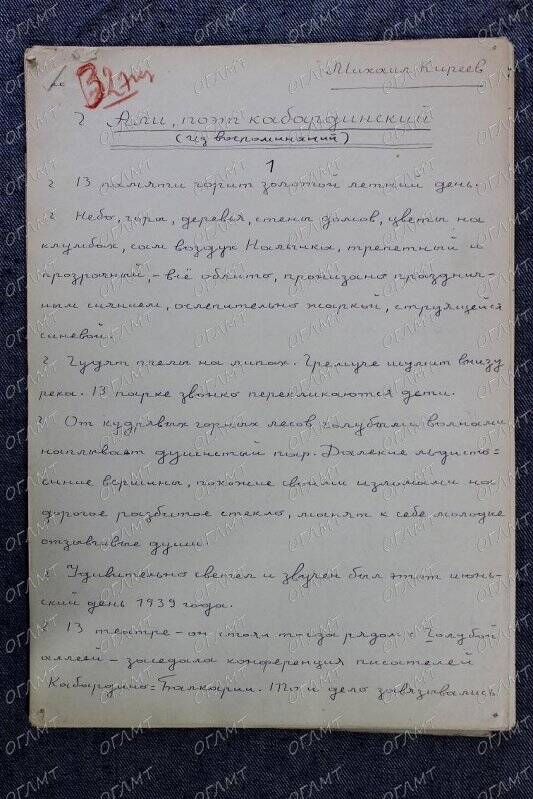 32 
Михаил Киреев
Али, поэт кабардинский
(из воспоминаний)
1
В памяти горит золотой летний день.
Небо, горы, деревья, стены домов, цветы на
клумбах, сам воздух Нальчика, трепетный и
прозрачный, - всё облито, пронизано празднич-
ным сиянием, ослепительно жаркой, струящейся
синевой.
Гудят пчелы на липах. Гремуче шумит внизу
река. В парке звонко перекликаются дети.
От кудрявых горных лесов голубыми волнами
наплывает душистый пар. Далекие льдисто=
синие вершины, похожие своими изломами на
дорогое разбитое стекло, манят к себе молодые
отзывчивые души.
Удивительно светел и звучен был этот июнь-
ский день 1939 года.
В театре - он стоял тогда рядом с Голубой
аллеей - заседала конференция писателей
Кабардино=Балкарии. То и дело завязывались
ОГЛМТ